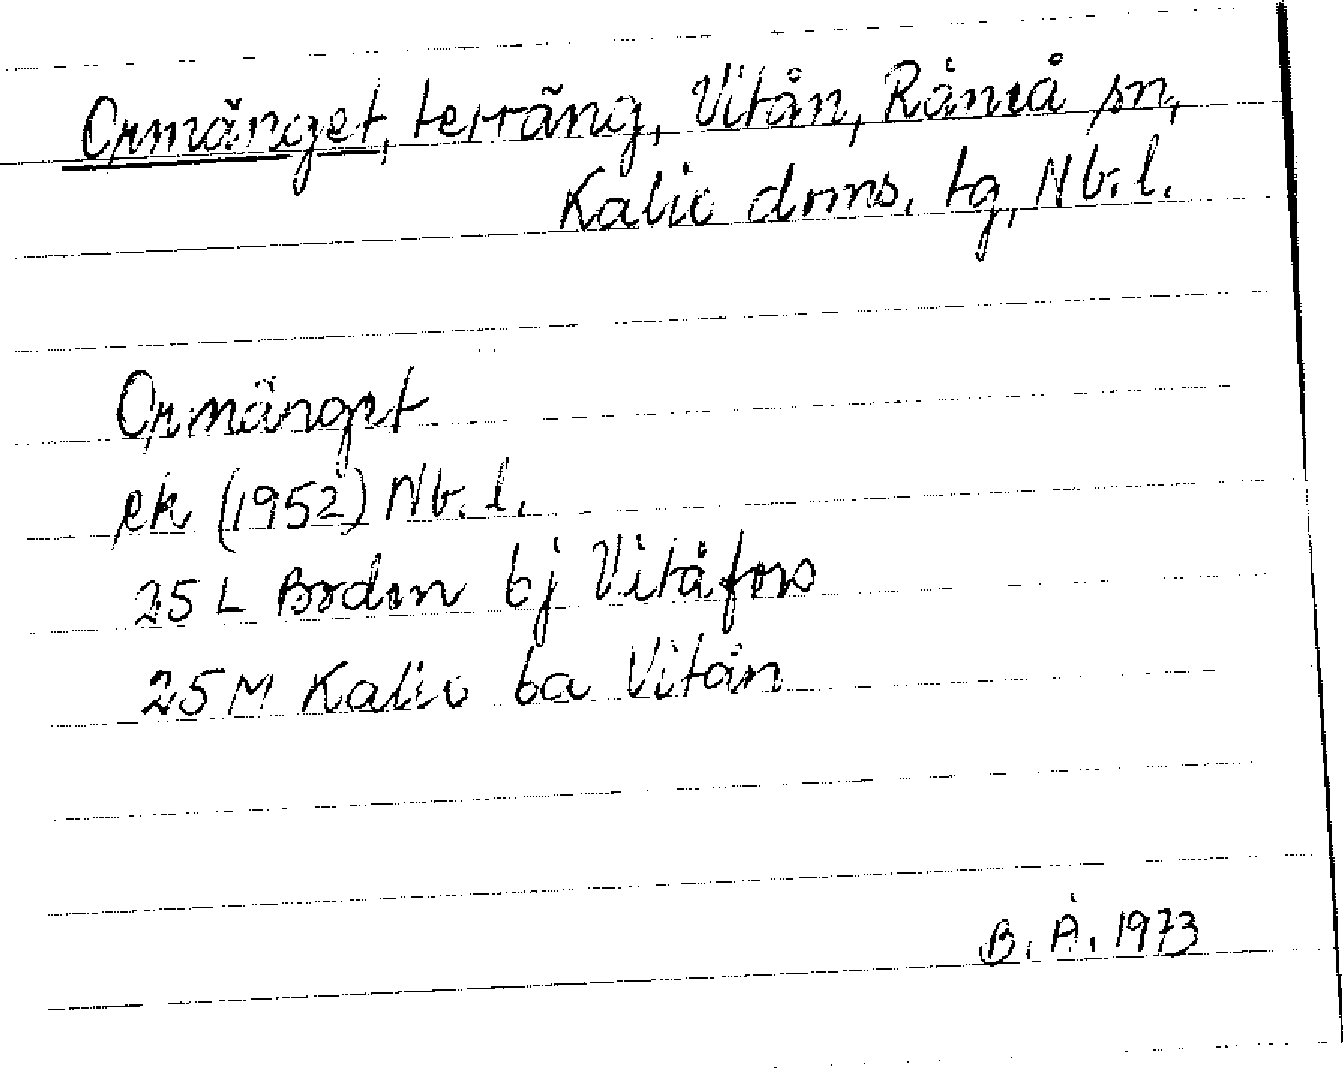 Ormänget, terräng, Vitån, Råneå sn,
Kalix doms. tg, Nb. l.
Ormänget
ek (1952) Nb. l.
25 L Boden bj Vitåfors
25 M Kalix ba Vitån
B. Å. 1973